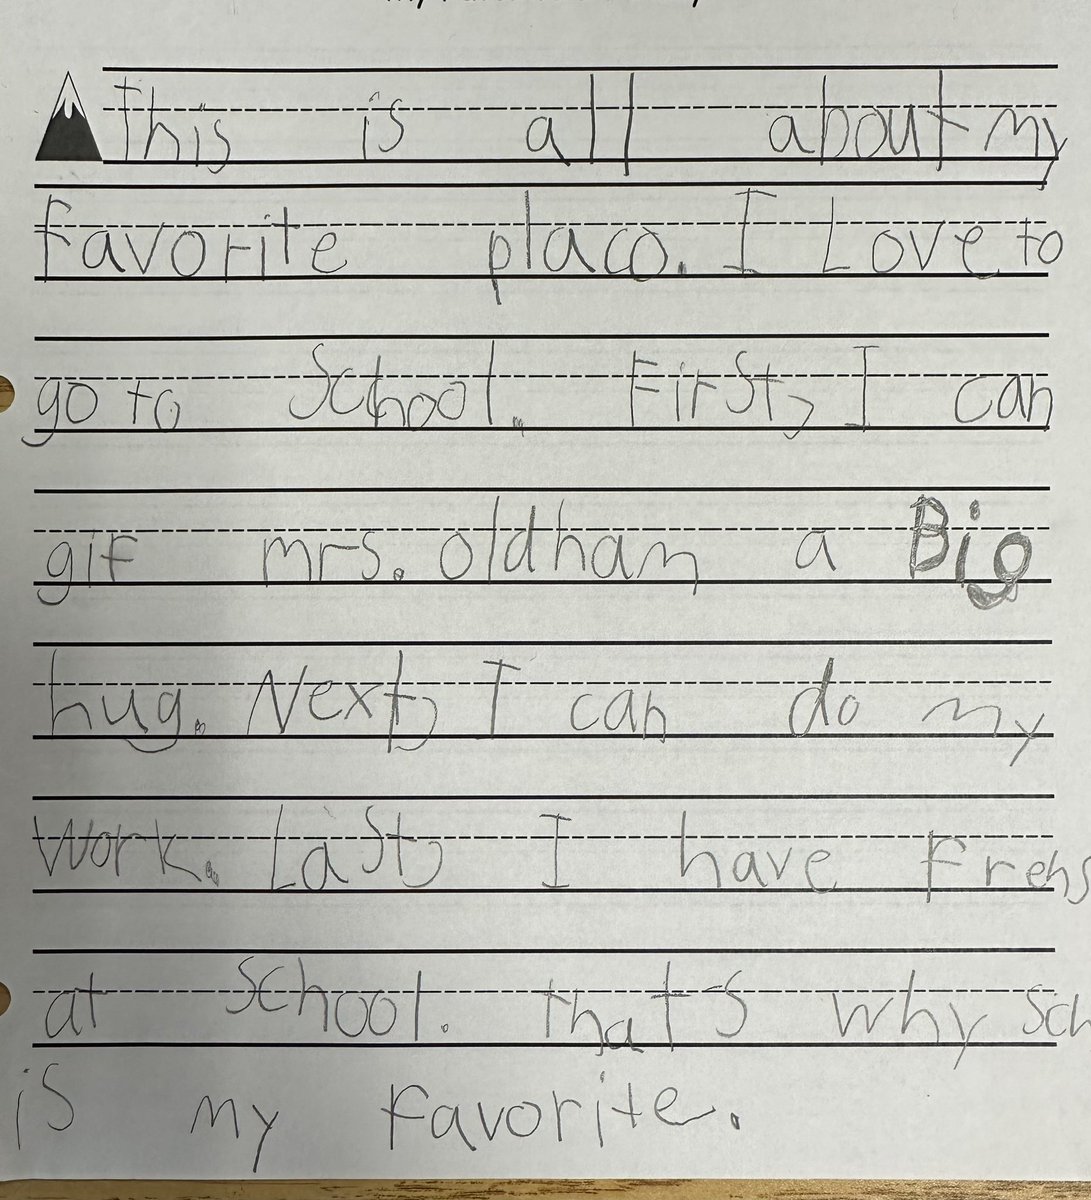 this is all about my
favorite placo. I Love to
go to School. First, I can
gif mrs. oldham a Big
hug. Next, I can do my
Work. Last, I have Frens
at School. that's why sch
is my favorite.